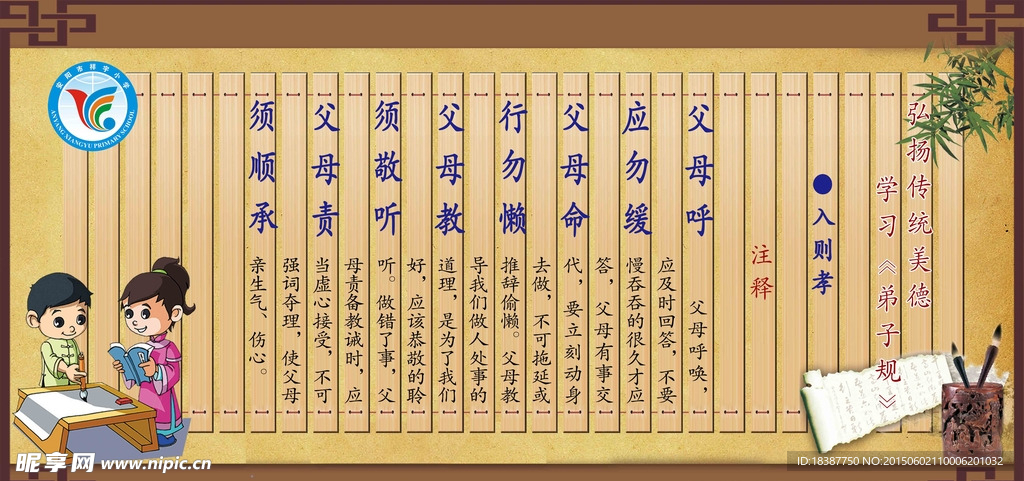 弘扬传统美德
学习《弟子规》
●入则孝
注释
父母呼
应勿缓
父母命
行勿懒
父母教
须敬听
父母责
须顺承
父母呼唤，
应及时回答，不要
慢吞吞的很久才应
答，父母有事交
代，要立刻动身
去做，不可拖延或
推辞偷懒。父母教
导我们做人处事的
道理，是为了我们
好，应该恭敬的聆
听。做错了事，父
母责备教诫时，应
当虚心接受，不可
强词夺理，使父母
亲生气、伤心。
安阳市祥宇小学
ANYANG XIANGYU PRIMARY SCHOOL
昵享网 www.nipic.cn
ID:18387750 NO:20150602110006201032